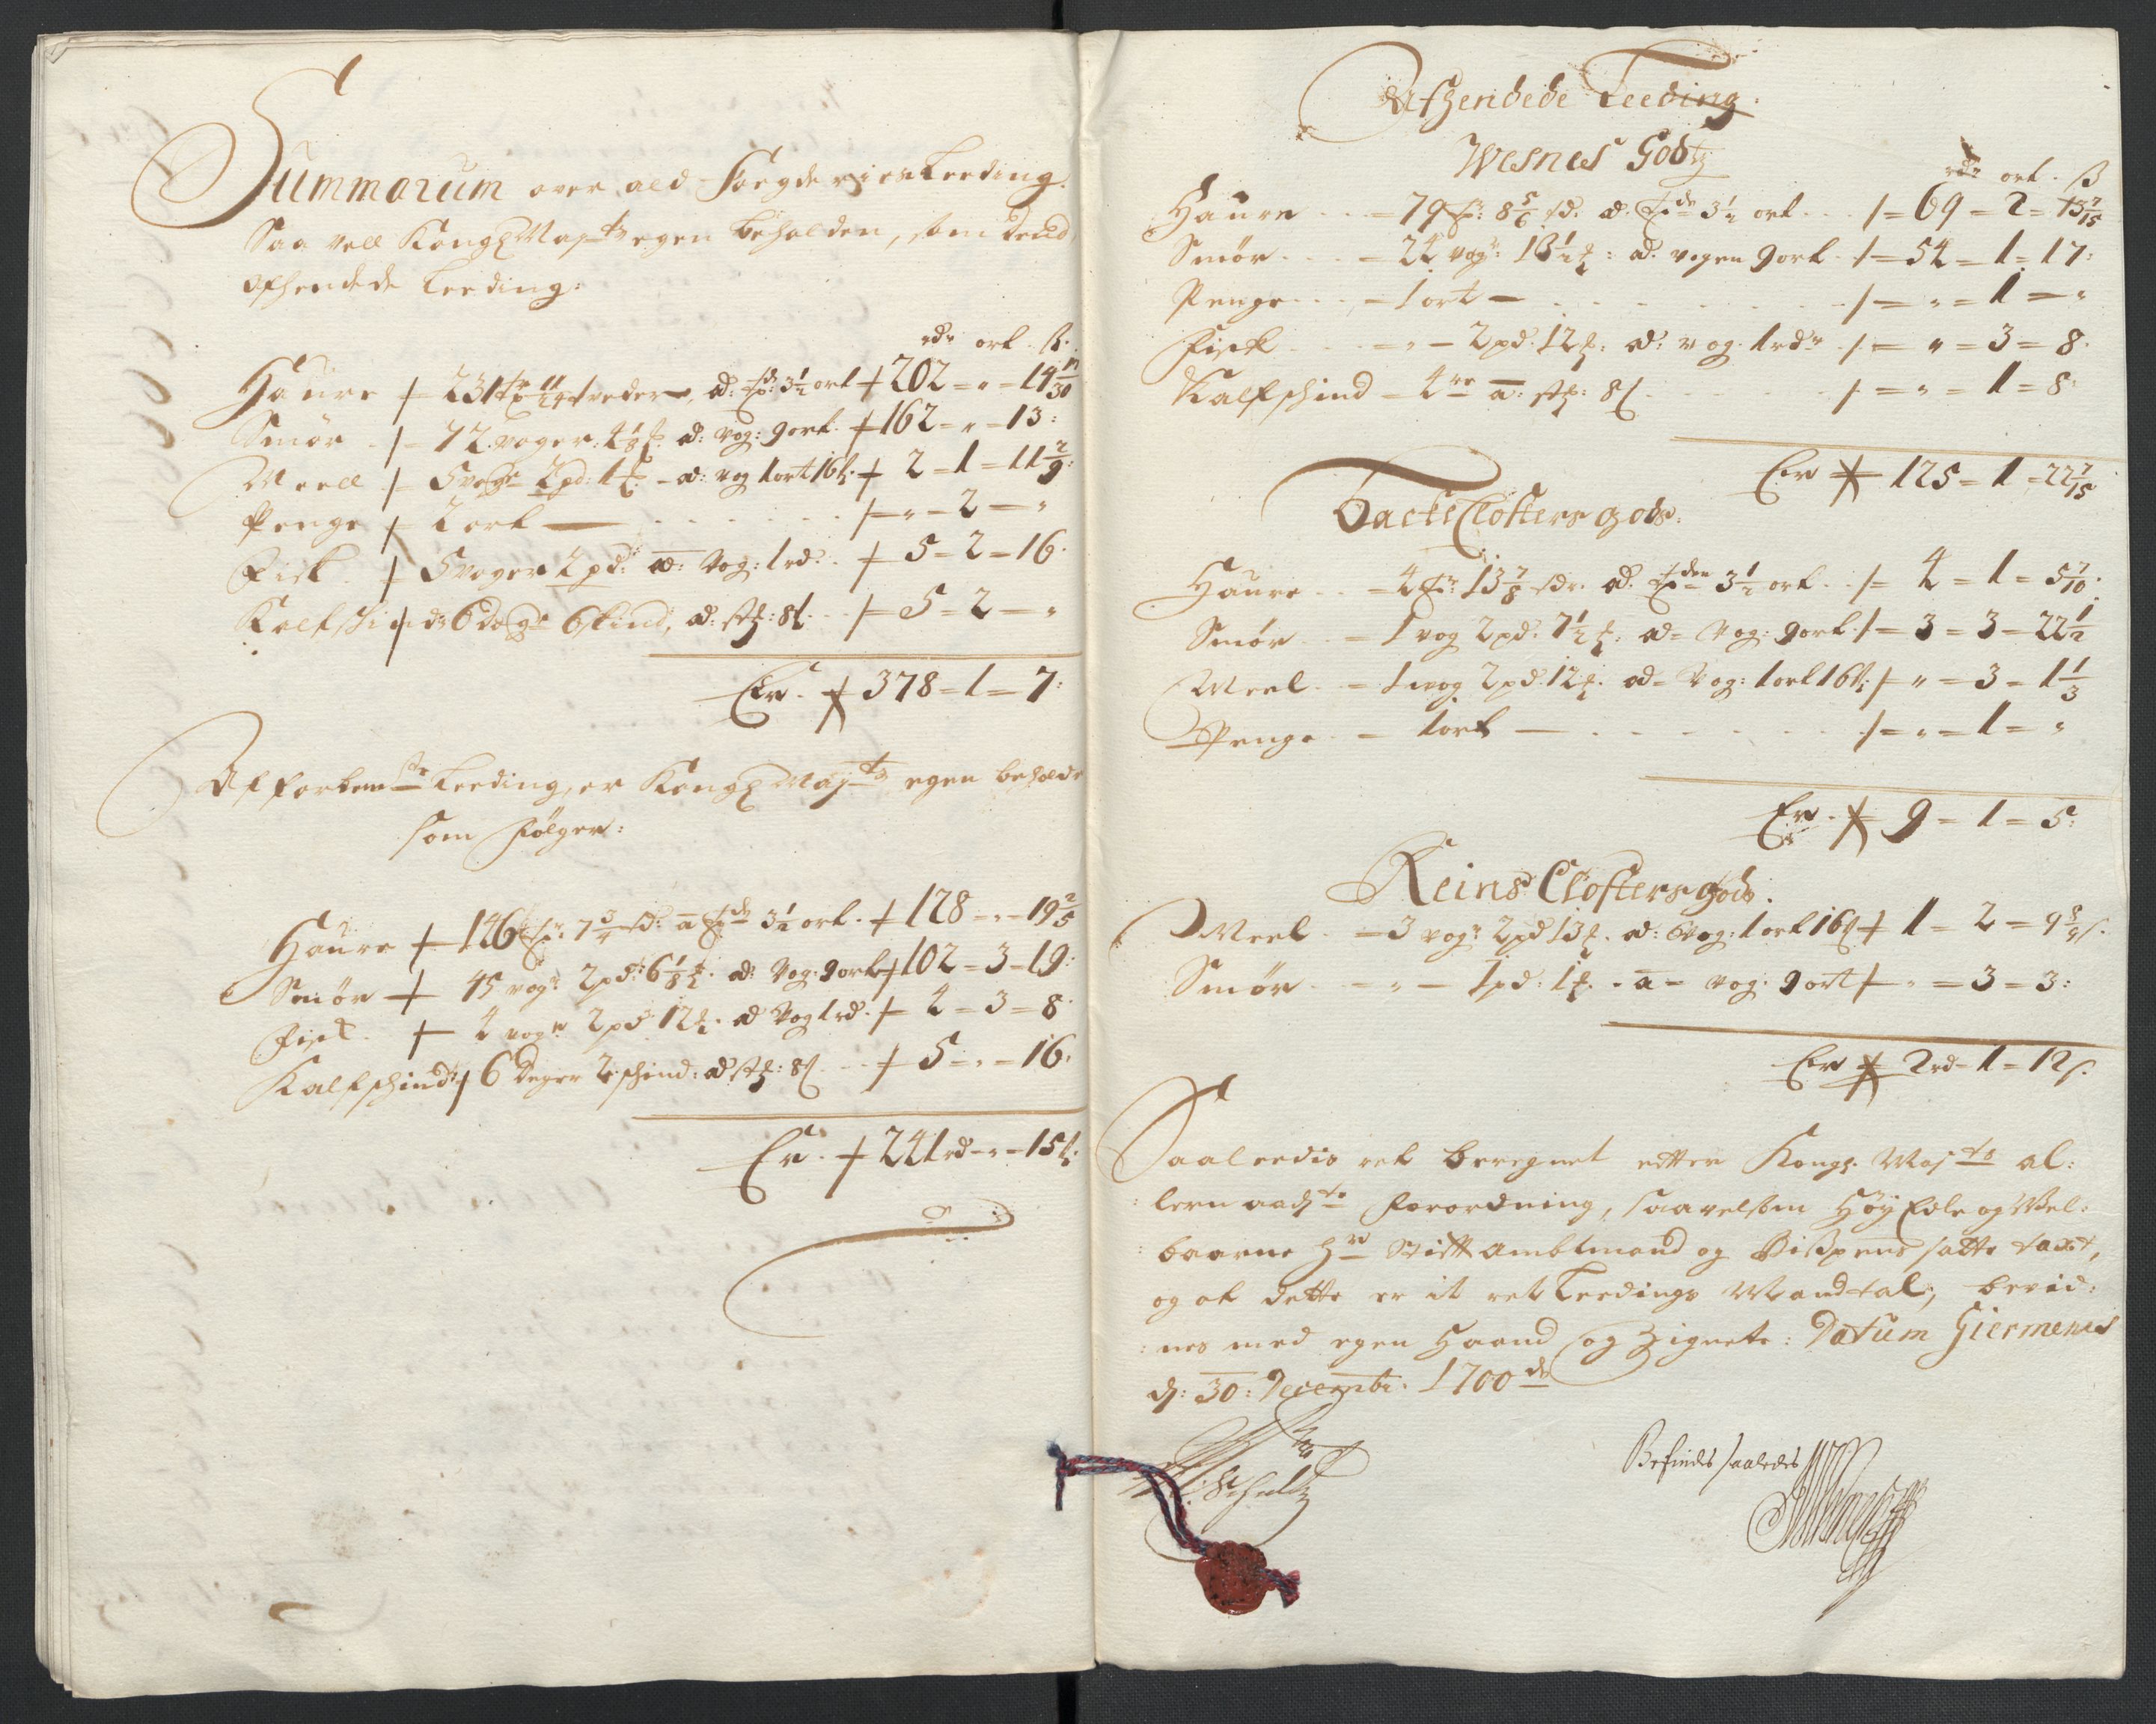 Summarum over ald Foegderiens Leeding.
Saa vell Kongl Mayts egen beholden, som dend
Afhendede Leeding:
rdr ort ß.
Haure 231 11/24 ad: 3½ ort 202 = „ = 14 11/30
Smør 72 woger: 4⅛ ad: Vog: 9 ort 162 = „ = 13:
Meell 5 wogr 2 pd: 1 ad: vog 1 ort 16ß 2 = 1 = 11 2/9:
Penge 2 ort „ = 2 = „
Fisk 5 woger 2 pd: ad: Vog: 1 rd: 5 = 2 = 16.
Kalfskind 6 degr 6 skind, ad: stk: 8ß 5 = 2 = „
Er. 378 = 1 = 7:
Af forbente Leeding, er Kongl Mayts egen beholden
som følger:
Haure 146 7¾ a 3½ ort 128 = „ = 19 2/5
Smør 45 vogr 2 pd: 6⅛ ad: Vog: 9 ort 102 = 3 = 19:
Fisk 4 vogr 2 pd 12 ad Vog 1 rd. 4 = 3 = 8
Kalfschind 6 Deger 2 schind: ad stk: 8ß 5 = „ = 16.
Er. 241 rd = „ = 15ß:
Afhendede Leeding.
Wesnes Godtz
rdr ort ß
Haure 79 8 5/6 ad. 3½ ort 69 = 2 = 15 7/15
Smør 24 vogr: 13½ ad. vogen 9 ort 54 = 1 = 17:
Penge 1 ort „ = 1 = „
Fisk „ 2 pd. 12 ad: vog. 1 rdr „ = 3 = 8.
Kalfschind 4re a: stk: 8ß „ = 1 = 8
Er 125 = 1 = 22 7/15
Backe Closters gods:
Haure 4 13 7/8 ad. 3½ ort 4 = 1 = 5 7/10.
Smør 1 vog 2 pd. 7½ ad Vog: 9 ort 3 = 3 = 22½
Meel 1 wog 2 pd 12 ad Vog: 1 ort 16ß: „ = 3 = 1⅓
Penge 1 ort „ = 1 = „
Er. 9 = 1 = 5:
Reins Closters gods.
Meel 3 vogr 2 pd 13 ad: Vog: 1 ort 16ß 1 = 2 = 9 8/9 ß.
Smør „ 1 pd: 1 a vog. 9 ort „ = 3 = 3:
Er 2 rd = 1 = 12ß.
Saaledis ret beregnet efter Kongl. Mayts al:
lernaadste forordning, saavelsom Høy Edle og Wel:
baarne Hr Stiftambtmand og Bispens satte taxt,
og at dette er it ret Leedings Mandtal, bevid:
nes med egen Haand og Zignete: Datum Giermenes
d: 30: Decembr. 1700de
Schultz
Befindes saaledes